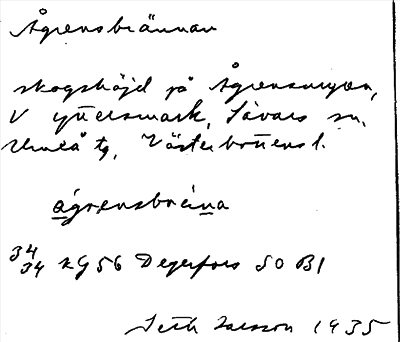 Ågrensbrännan
skogshöjd på Ågrensmyran,
V Yttersmark, Sävars sn,
Umeå tg, Västerbottens l.
ágrensbreina
34
34 kg 56 Degerfors 50 B1
Seth Larsson 1935